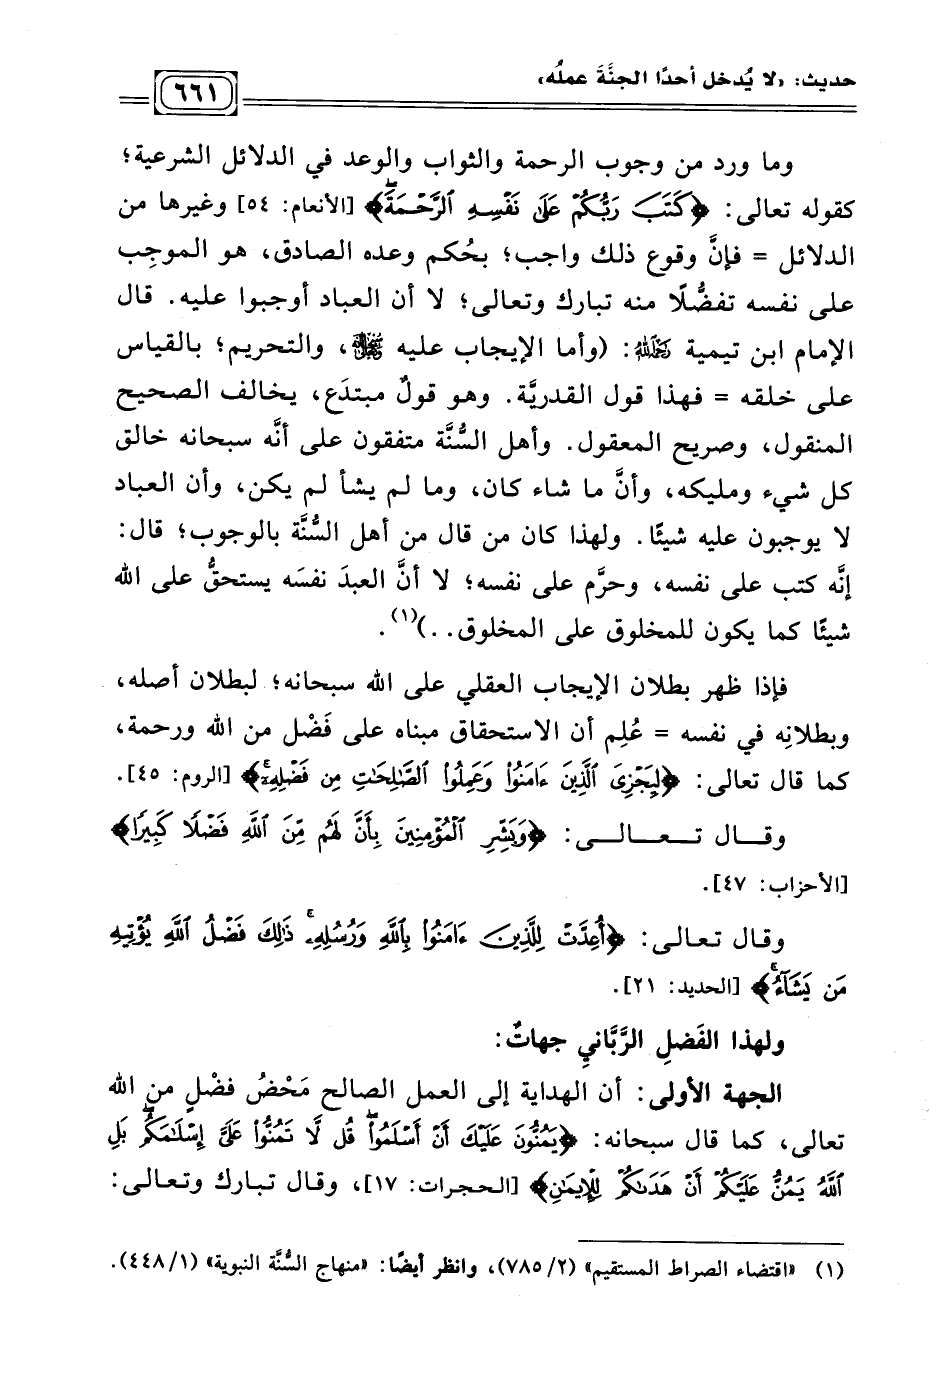 حديث: «لا يُدخل أحدًا الجنَّةَ عملُه»
٦٦١
وما ورد من وجوب الرحمة والثواب والوعد في الدلائل الشرعية؛
كقوله تعالى: ﴿كَتَبَ رَبُّكُمْ عَلَىٰ نَفْسِهِ ٱلرَّحْمَةَ﴾ [الأنعام: ٥٤] وغيرها من
الدلائل = فإنَّ وقوع ذلك واجب؛ بحُكم وعده الصادق، هو الموجِب
على نفسه تفضُّلًا منه تبارك وتعالى؛ لا أن العباد أوجبوا عليه. قال
الإمام ابن تيمية رَحِمَهُ اللهُ: (وأما الإيجاب عليه ﷾، والتحريم؛ بالقياس
على خلقه = فهذا قول القدريَّة. وهو قولٌ مبتدَع، يخالف الصحيح
المنقول، وصريح المعقول. وأهل السُّنَّة متفقون على أنَّه سبحانه خالق
كل شيء ومليكه، وأنَّ ما شاء كان، وما لم يشأ لم يكن، وأن العباد
لا يوجبون عليه شيئًا. ولهذا كان من قال من أهل السُّنَّة بالوجوب؛ قال:
إنَّه كتب على نفسه، وحرَّم على نفسه؛ لا أنَّ العبدَ نفسَه يستحقُّ على الله
شيئًا كما يكون للمخلوق على المخلوق..)(١).
فإذا ظهر بطلان الإيجاب العقلي على الله سبحانه؛ لبطلان أصله،
وبطلانِه في نفسه = عُلِم أن الاستحقاق مبناه على فَضْل من الله ورحمة،
كما قال تعالى: ﴿لِيَجْزِىَ ٱلَّذِينَ ءَامَنُوا۟ وَعَمِلُوا۟ ٱلصَّـٰلِحَـٰتِ مِن فَضْلِهِۦٓ﴾ [الروم: ٤٥].
وقال تعالى: ﴿وَبَشِّرِ ٱلْمُؤْمِنِينَ بِأَنَّ لَهُم مِّنَ ٱللَّهِ فَضْلًا كَبِيرًا﴾
[الأحزاب: ٤٧].
وقال تعالى: ﴿أُعِدَّتْ لِلَّذِينَ ءَامَنُوا۟ بِٱللَّهِ وَرُسُلِهِۦ ۚ ذَٰلِكَ فَضْلُ ٱللَّهِ يُؤْتِيهِ
مَن يَشَآءُ ۚ﴾ [الحديد: ٢١].
ولهذا الفَضلِ الرَّبَّاني جهاتٌ:
الجهة الأولى: أن الهداية إلى العمل الصالح مَحْضُ فضْلٍ من الله
تعالى، كما قال سبحانه: ﴿يَمُنُّونَ عَلَيْكَ أَنْ أَسْلَمُوا۟ ۖ قُل لَّا تَمُنُّوا۟ عَلَىَّ إِسْلَـٰمَكُم ۖ بَلِ
ٱللَّهُ يَمُنُّ عَلَيْكُمْ أَنْ هَدَىٰكُمْ لِلْإِيمَـٰنِ﴾ [الحجرات: ١٧]، وقال تبارك وتعالى:
(١) «اقتضاء الصراط المستقيم» (٢/ ٧٨٥)، وانظر أيضًا: «منهاج السُّنَّة النبوية» (١/ ٤٤٨).